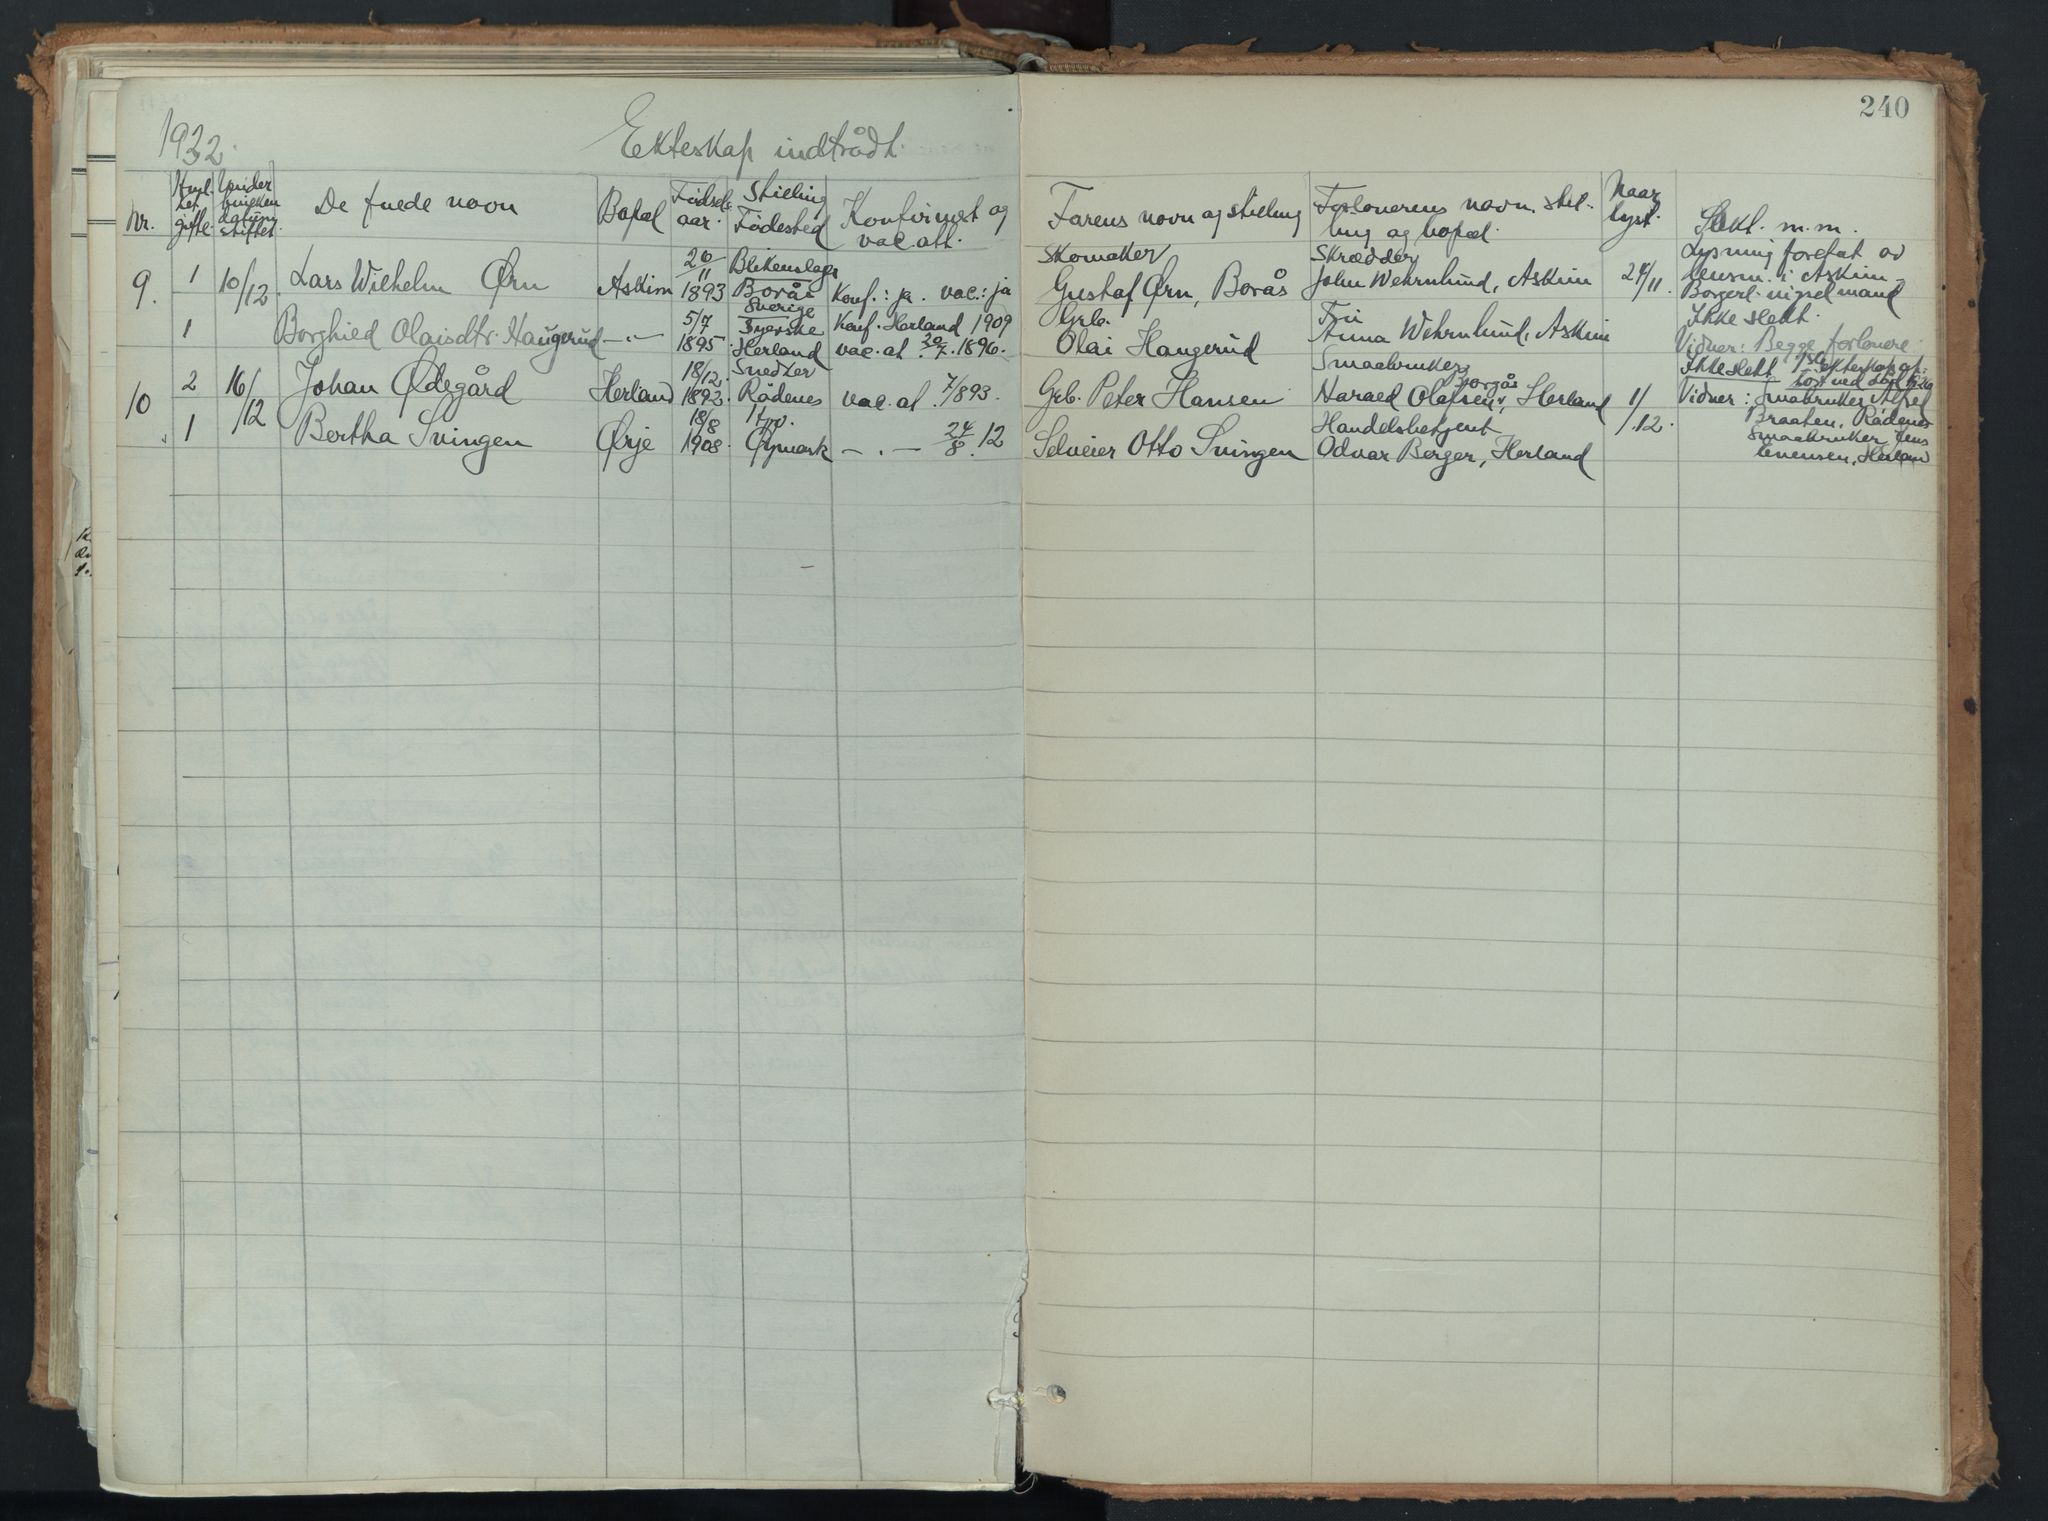 240
1932.
Ekteskap indtrådt.
Nr.
gifte.
De fuldes navn
Bopæl
Fødsels aar.
Stilling Fødested
Konfirmert og vac. att.
Farens navn og stilling
Forlovernes navn, stilling og bopæl.
Naar lyst.
Slekt. m.m.
9. 1 10/12 Lars Wilhelm Ørn Askim 20/11 1893 Blikenslager Borås Sverige Konf.: ja. vac.: ja
Skomaker Gustaf Ørn, Borås
Skrædder John Wehrnlund, Askim 24/11.
Lysning foretat av
lensm. i Askim
Borgerl. vigsel mand
Ikke slekt.
1 Borghild Olaisdtr. Haugerud —"— 5/7 1895. Syerske Herland Konf. Herland 1909
vac. at. 20/7. 1896.
Grb. Olai Haugerud
Fru Anna Wehrnlund, Askim
Vidner: Begge forlovere.
10 2 16/12 Johan Ødegård Herland 18/12. 1892. Snedker Rødenes vac. at. 7/893.
Grb. Peter Hansen
Smaabruker Harald Olafsen Borgås, Herland 1/12.
Ikke slekt
Vidner: Smabruker Alfred
Braaten, Rødenes
Smaabruker Jens
Evensen, Herland
1 Bertha Svingen Ørje 18/8 1908. Ørymark —"— 24/8. 12
Selveier Otto Svingen
Handelsbetjent Odvar Berger, Herland